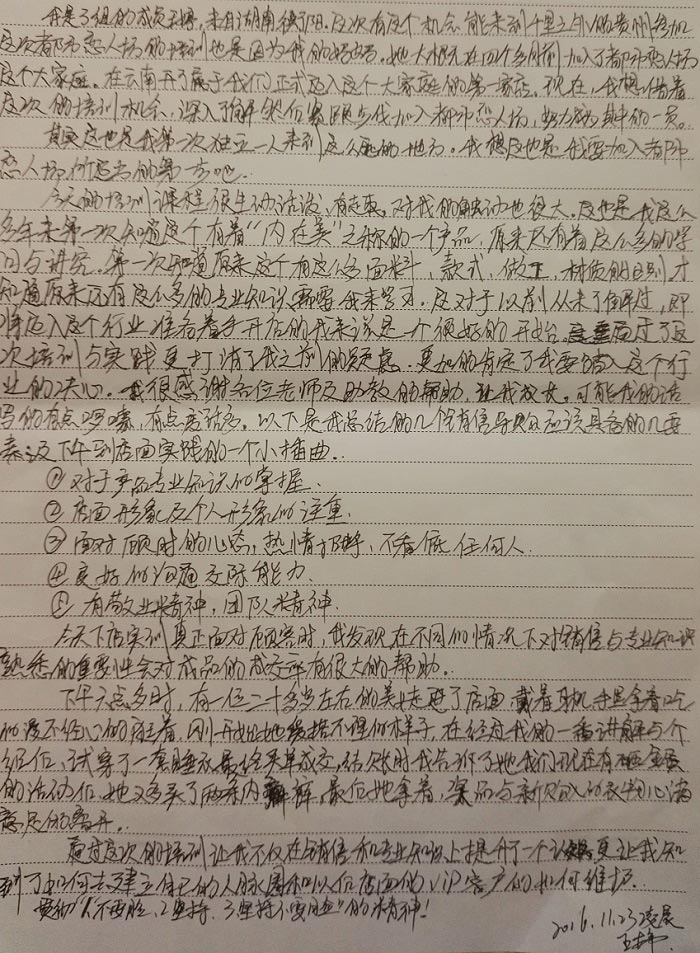 我是3组的成员王婷，来自湖南衡阳。这次有这个机会能来到千里之外的贵州参加
这次都市恋人场的培训也是因为我的好姐。她大概在四个多月前加入了都市恋人场
这个大家庭。在云南开了属于我们正式迈入这个大家庭的第一家店。现在，我想借着
这次的培训机会，深入了解然后紧跟步伐加入都市恋人场，努力成为其中的一员。
其实这也是我第一次独立一人来到这么远的地方。我想这也是我要加入者都市
恋人场所迈出的第一步吧。
今天的培训课程很生动活泼，有趣。对我的触动也很大。这也是我这么
多年来第一次知道这个有着“内在美”之称的一个产品，原来还有着这么多的学
问与讲究。第一次知道原来这个有这么多面料、款式、做工、材质的区别。才
知道原来还有这么多的专业知识需要我来学习。这对于以前从未了解过，即
将迈入这个行业准备着手开店的我来说是一个很好的开始。通过了这
次培训与实践更打消了我之前的疑虑。更加的肯定了我要踏入这个行
业的决心。我很感谢各位老师及助教的帮助，让我成长。可能我的话
写的有点啰嗦，有点废话多。以下是我总结的几个销售导购应该具备的几要
素及下午到店面实践的一个小插曲。
①对于产品专业知识的掌握.
②店面形象及个人形象的注重.
③面对顾客时的心态，热情打招呼、不看低任何人.
④良好的沟通交际能力.
⑤有敬业精神，团队精神.
今天下店实训真正面对顾客时，我发现在不同的情况下对销售与专业知识
熟悉的重要性会对成品的成交率有很大的帮助。
下午六点多时，有一位二十多岁左右的美女走进了店面，戴着耳机手里拿着吃
的漫不经心的逛着，刚开始她爱搭不理的样子，在经过我的一番讲解与介
绍后，试穿了一套睡衣最终买单成交，结账时我告诉了她我们现在有砸金蛋
的活动后，她又多买了两条内裤，最后她拿着奖品与新购入的衣物心满
意足的离开。
通过这次的培训让我不仅在销售和专业知识上提升了一个认知，更让我知
到了如何去建立自己的人脉圈和以后店面的VIP客户的如何维护.
贯彻“1不要脸、2坚持、3坚持不要脸”的精神！
2016.11.23凌晨
王婷.